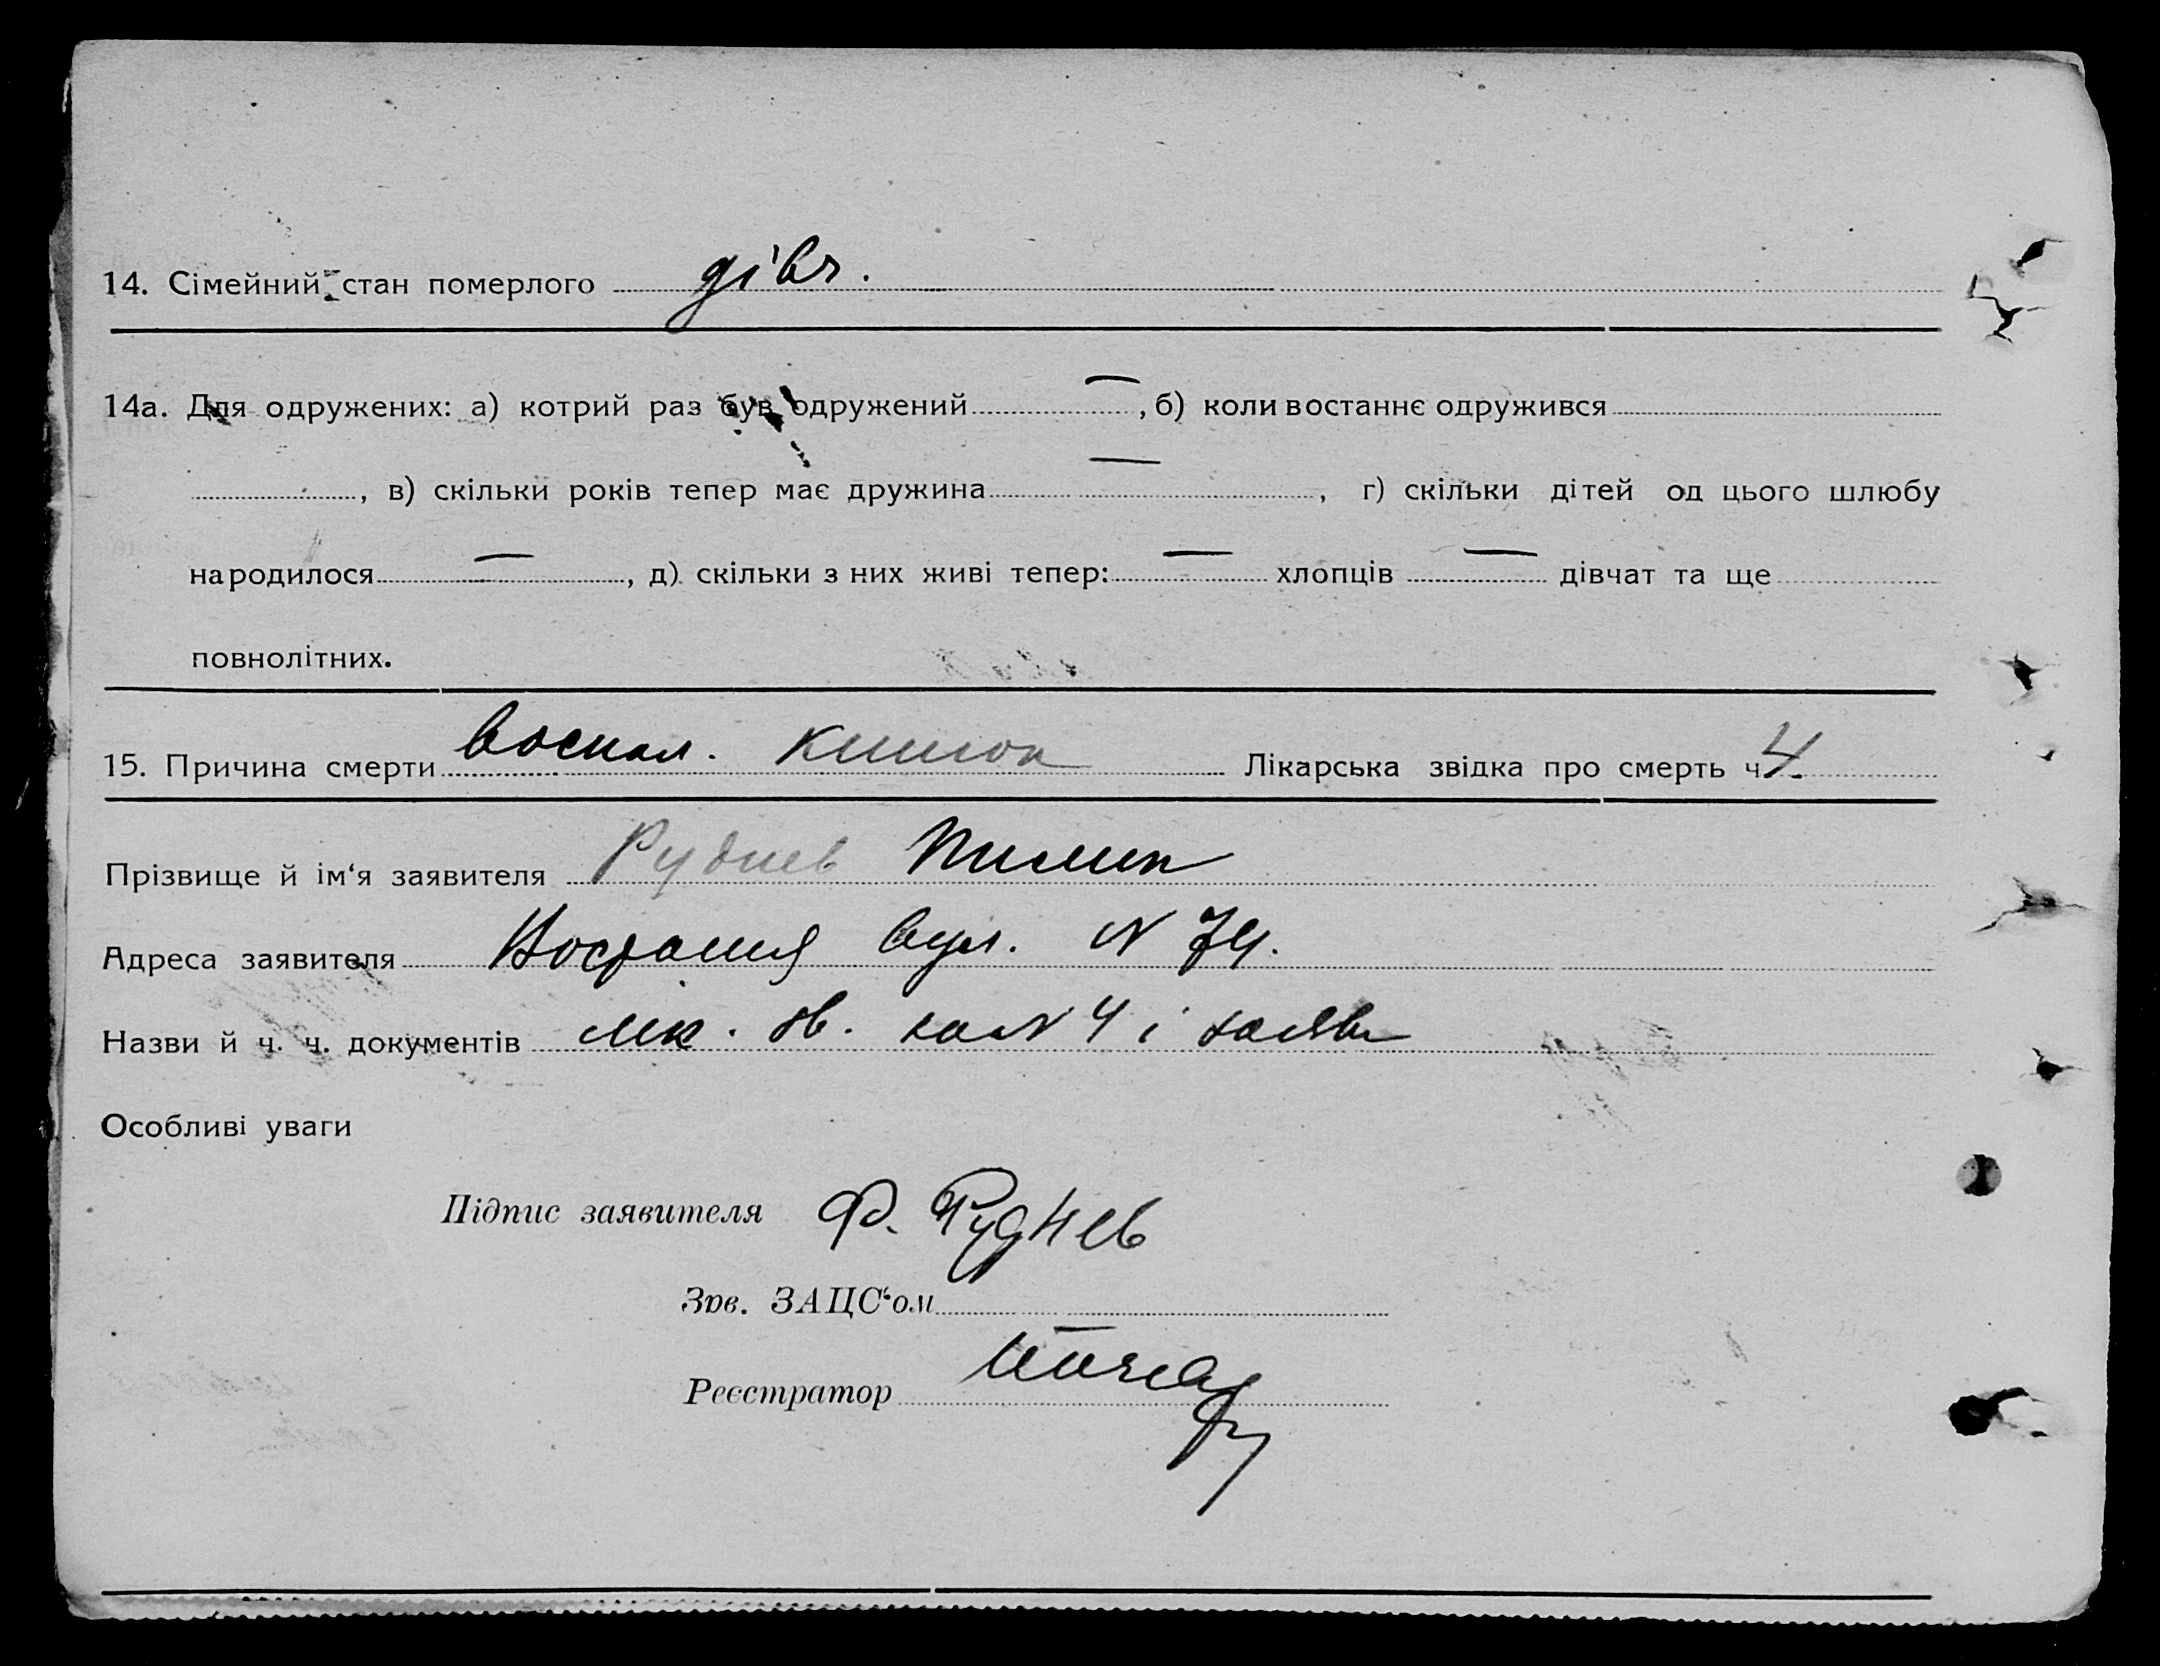 14. Сімейний стан померлого дівч.
14а. Для одружених: а) котрий раз був одружений — , б) коли востаннє одружився
, в) скільки років тепер має дружина — , г) скільки дітей од цього шлюбу
народилося — , д) скільки з них живі тепер: — хлопців — дівчат та ще
повнолітних.
15. Причина смерти воспал. кишок Лікарська звідка про смерть ч. 4
Прізвище й ім‘я заявителя Руднев Пилип
Адреса заявителя Востания вул. N 74.
Назви й ч. ч. документів лік. зв. за N 4 і заява
Особливі уваги
Підпис заявителя Ф. Руднев
Зав. ЗАЦС‘ом
Реєстратор